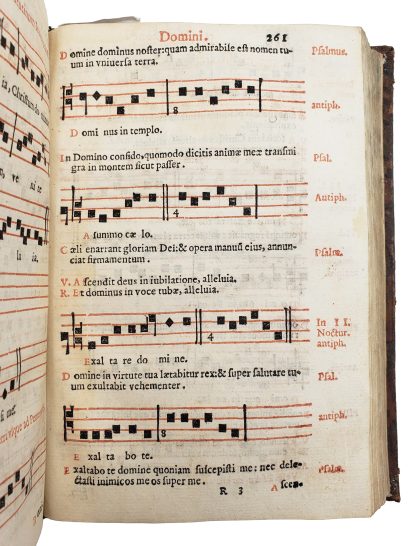 Domini. 261
Domine dominus noster: quam admirabile est nomen tu-
um in vniuersa terra.
Psalmus.
8
antiph.
Domi nus in templo.
In Domino confido, quomodo dicitis animæ meæ transmi
gra in montem sicut passer.
Psal.
4
Antiph.
A summo cæ lo.
Cæli enarrant gloriam Dei: & opera manuū eius, annun-
ciat firmamentum.
Psalm.
V. Ascendit deus in iubilatione, alleluia.
R. Et dominus in voce tubæ, alleluia.
In II.
Noctur.
antiph.
6
Exal ta re do mi ne.
Domine in virtute tua lætabitur rex: & super salutare tu-
um exultabit vehementer.
Psal.
8
antiph.
E xal ta bo te.
Exaltabo te domine quoniam suscepisti me: nec dele-
ctasti inimicos meos super me.
Psalm.
R 3 Ascen-
ia, Christum do
ve ni te
lu ia.